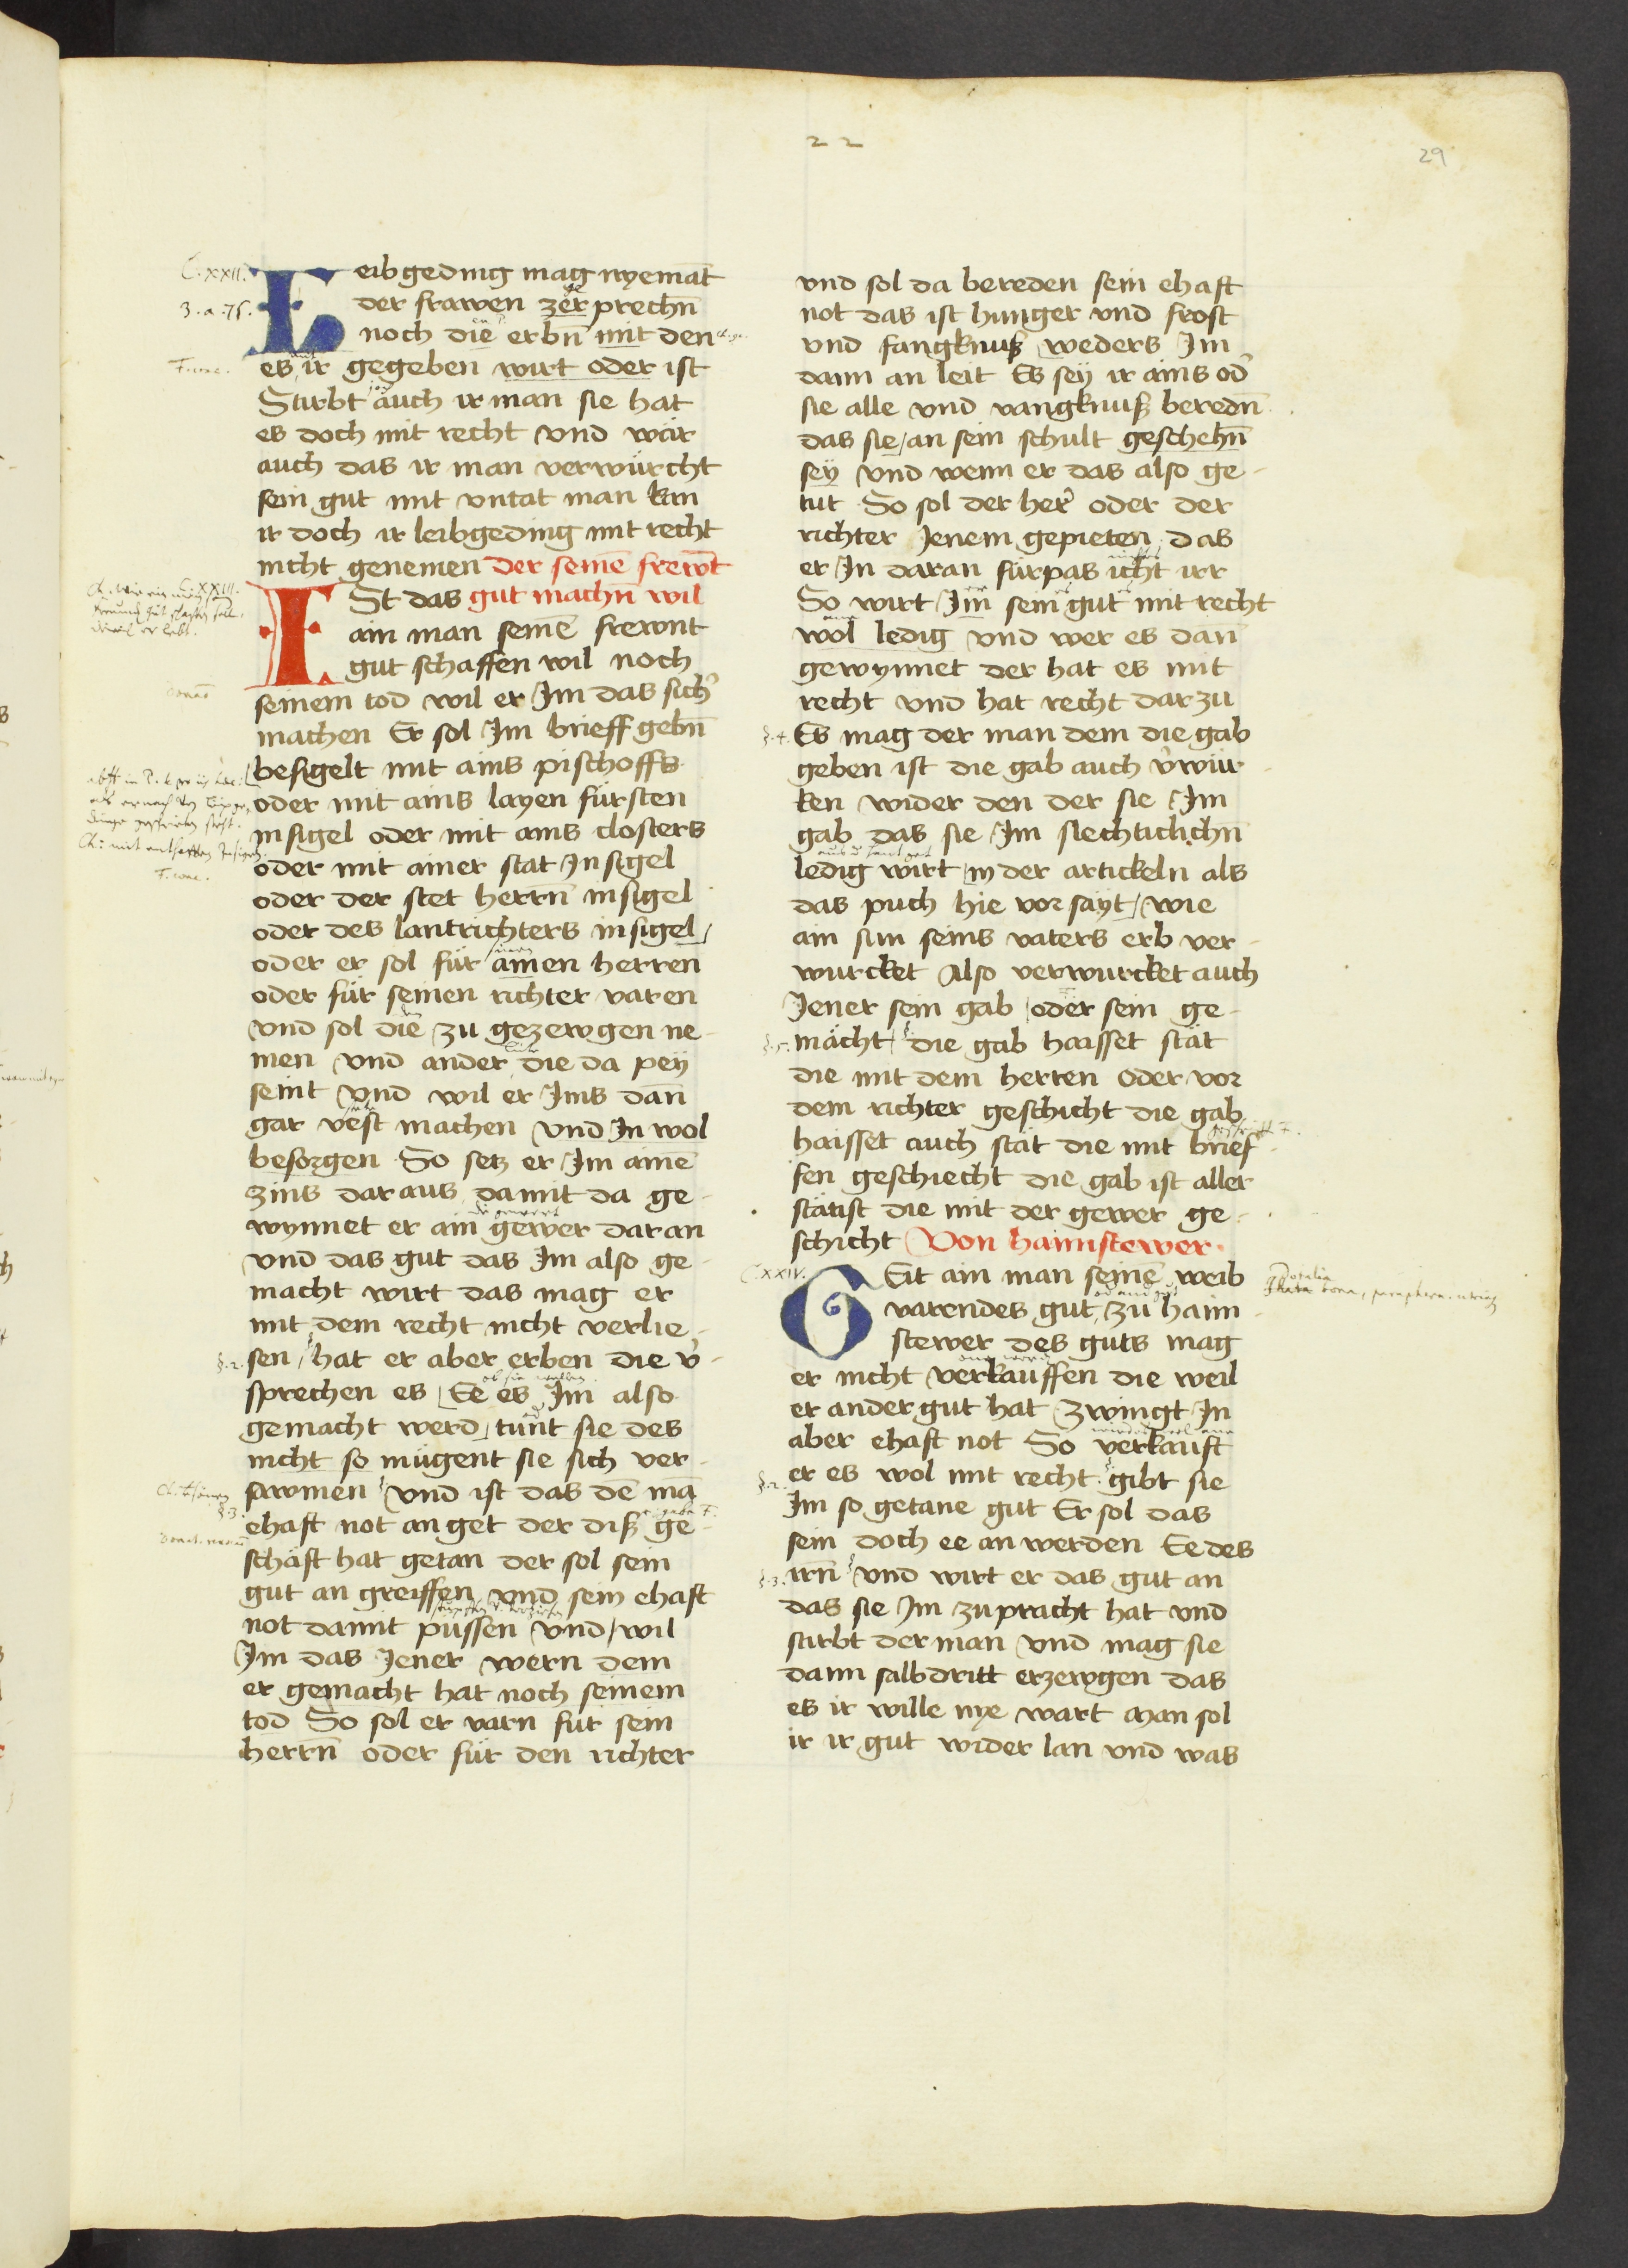 22
29
Leibgeding mag nyemāt
der frawen zerprechn̄
noch die erbn̄ mit den
es ir gegeben wirt oder ist
Stirbt auch ir man sie hat
es doch mit recht vnd wär
auch das ir man verwürcht
sein gut mit vntat man kan
ir doch ir leibgeding mit recht
nicht genemen Der seinē frewt
ISt das gut machn̄ wil
ain man seinē frewnt
gut schaffen wil noch
seinem tod wil er Im das sich̓
machen Er sol Im brieff gebn̄
besigelt mit ains pischoffs
oder mit ains layen fürsten
insigel oder mit ains closters
oder mit ainer stat Insigel
oder der stet herrn̄ insigel
oder des lantrichters insigel
oder er sol für ainen herren
oder für seinen richter varen
vnd sol die zu gezewgen ne-
men vnd ander die da pey
seint vnd wil er Ims dan̄
gar vest machen vnd In wol
besorgen So setz er Im ainē
zins daraus damit da ge-
wynnet er ain gewer daran
vnd das gut das Im also ge-
macht wirt das mag er
mit dem recht nicht verlie-
sen / hat er aber erben die v̓-
sprechen es Ee es Im also
gemacht werd tunt sie des
nicht so mügent sie sich ver-
sawmen vnd ist das dē mā
ehaft not an get der diß ge-
schäft hat getan der sol sein
gut an greiffen vnd sein ehaft
not damit püssen vnd / wil
Im das Jener wern dem
er gemacht hat noch seinem
tod So sol er varn für sein
herrn̄ oder für den richter
vnd sol da bereden sein ehaft
not das ist hunger vnd frost
vnd fangknuß weders Im
dann an leit Es sey ir ains od̓
sie alle vnd vangknuß beredn̄
das sie / an sein schult geschehn̄
sey vnd wenn er das also ge-
tut So sol der her̓ oder der
richter Jenem gepieten das
er In daran fürpas icht irr
So wirt Im sein gut mit recht
wol ledig vnd wer es dan̄
gewynnet der hat es mit
recht vnd hat recht darzu
Es mag der man dem die gab
geben ist die gab auch v̓wür-
ken wider den der sie Im
gab das sie Im slechticlichn̄
ledig wirt in der artickeln als
das puch hie vor sayt / wie
ain sun seins vaters erb ver-
wurcket Also verwurcket auch
Jener sein gab oder sein ge-
mächt / die gab haisset stät
die mit dem herren oder vor
dem richter geschicht die gab
haisset auch stät die mit brief-
fen geschiecht die gab ist aller
stätist die mit der gewer ge-
schicht Von haimstewer
GEit ain man seinē weib
varendes gut zu haim-
stewer des guts mag
er nicht verkauffen die weil
er ander gut hat zwingt In
aber ehaft not So verkauft
er es wol mit recht gibt sie
Im so getane gut Er sol das
sein doch ee an werden Ee des
irn̄ vnd wirt er das gut an
das sie Im zupracht hat vnd
stirbt der man vnd mag sie
dann salbdritt erzewgen das
es ir wille nye wart Man sol
ir ir gut wider lan vnd was
C.XXII.
C.XXIII.
C.XXIV.
§.2.
§.3.
§.4.
§.5.
§.2.
§.3.